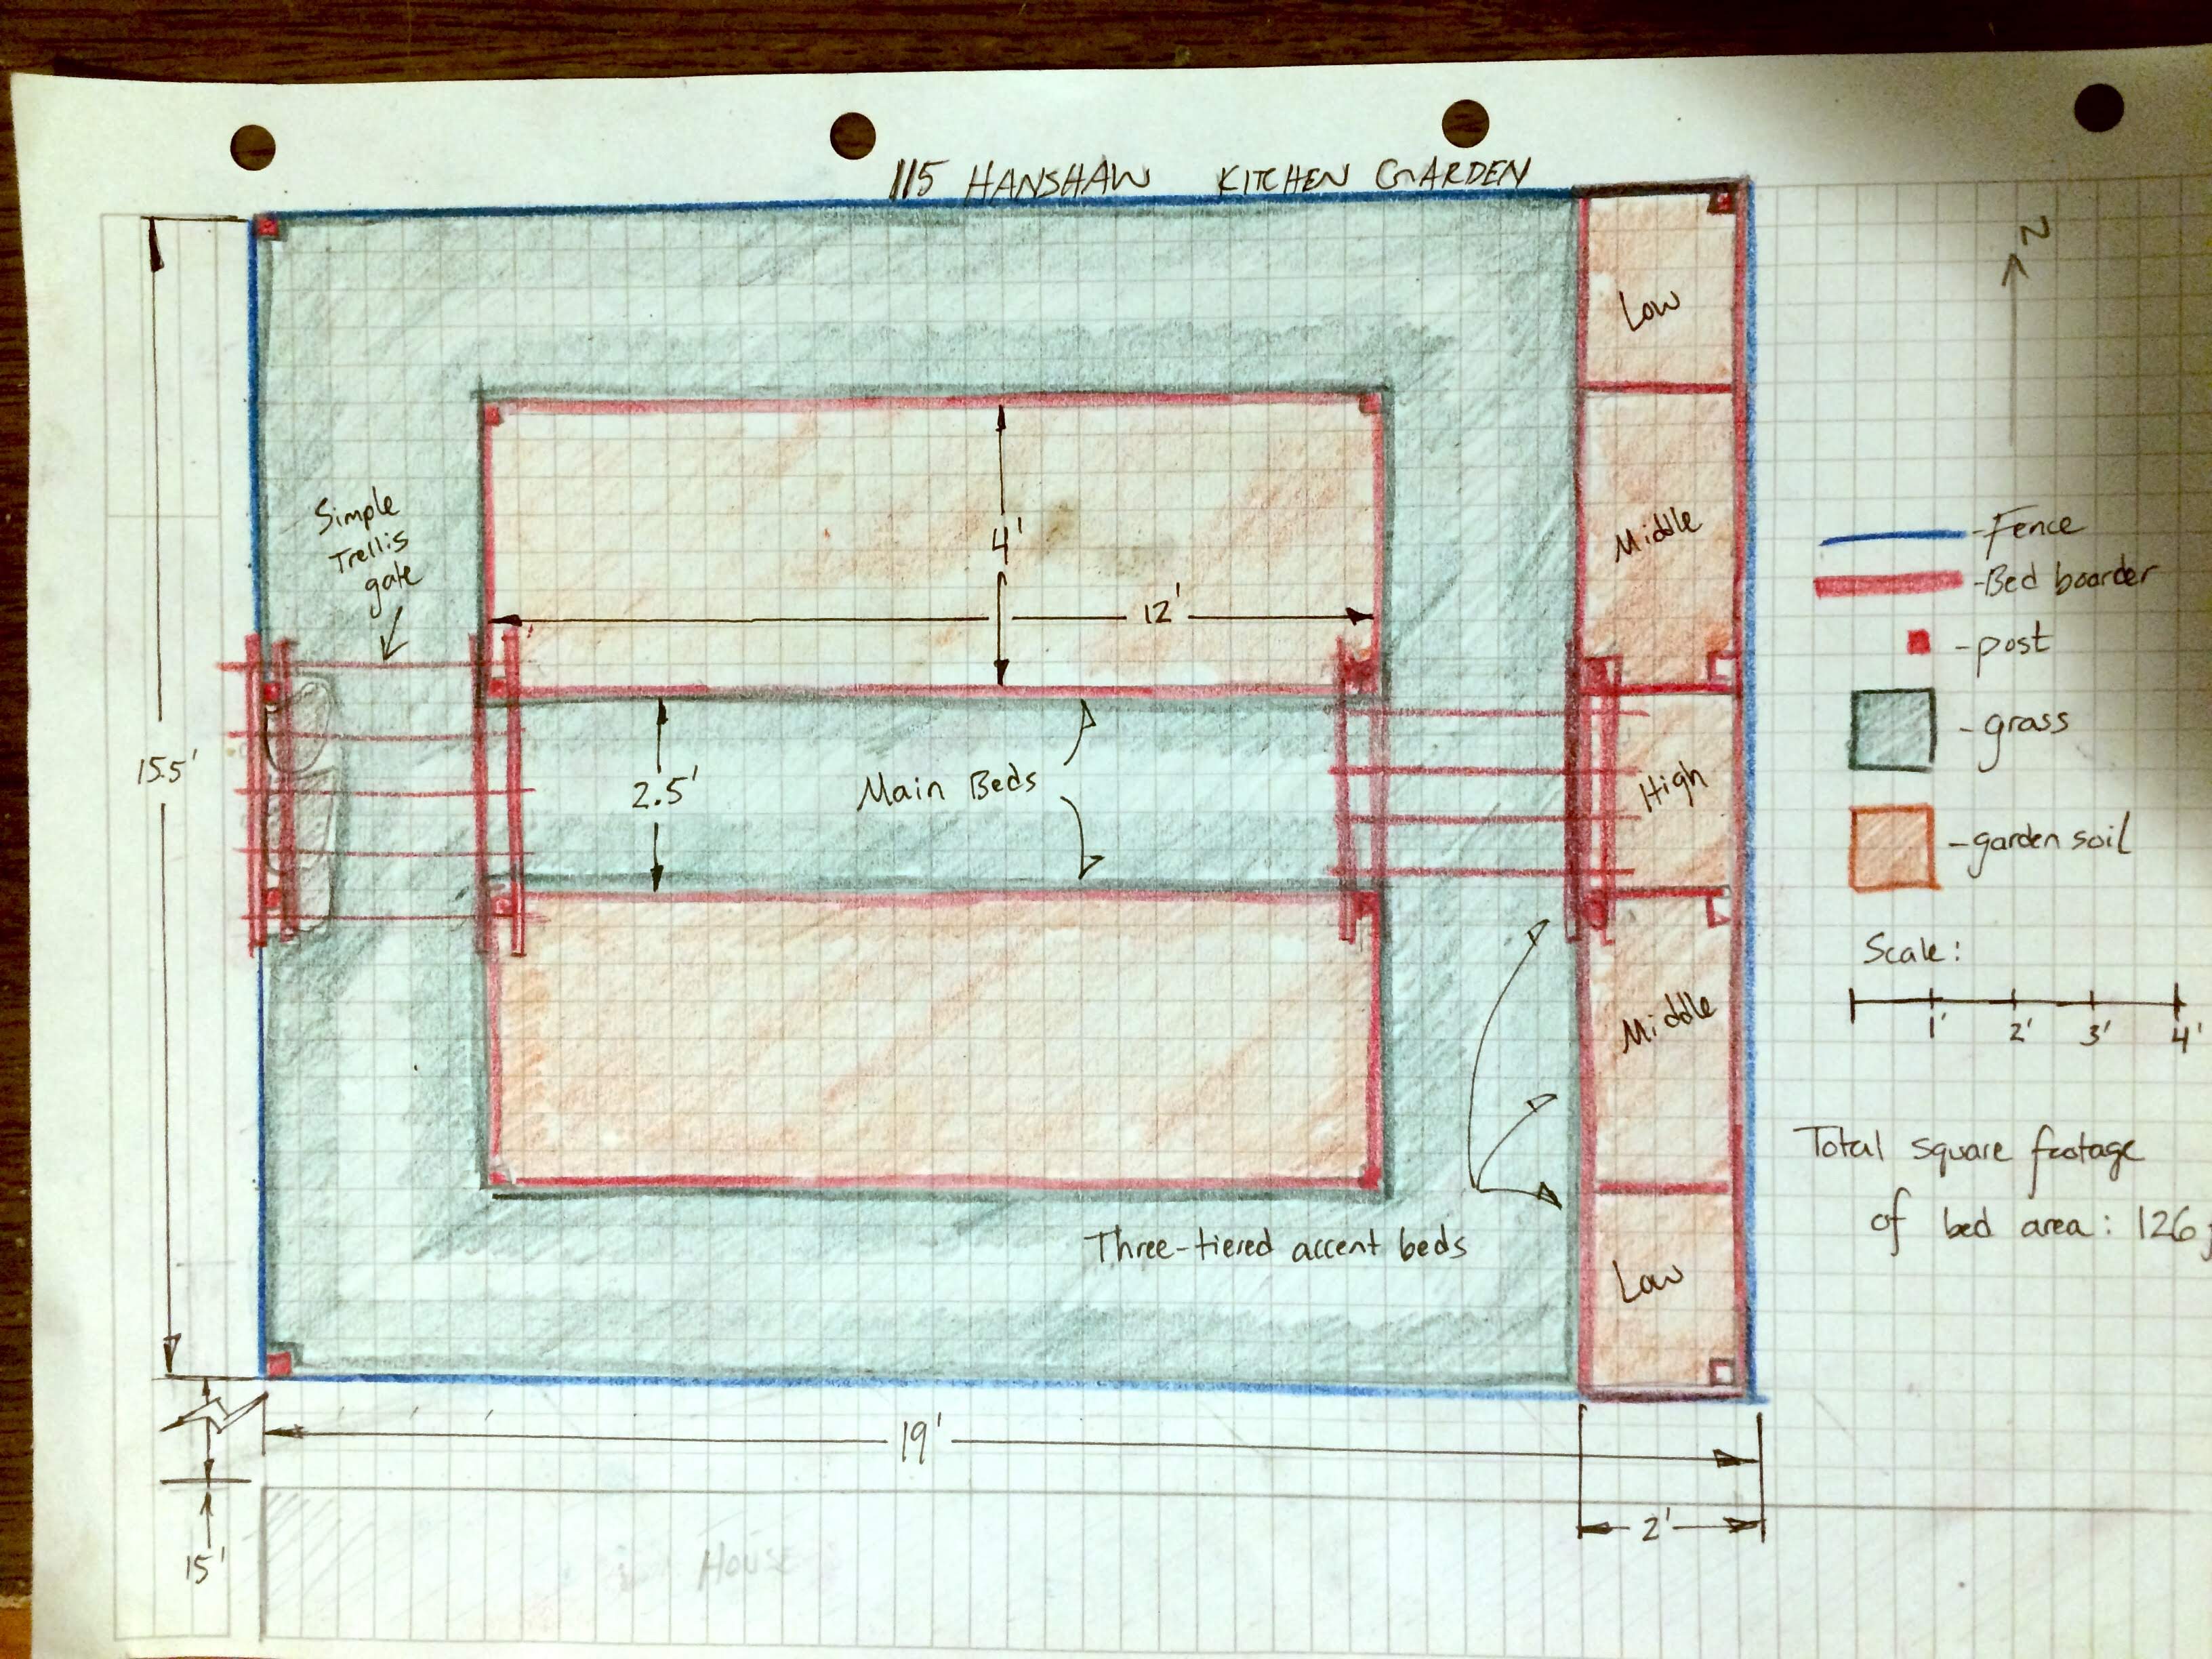 115 HANSHAW KITCHEN GARDEN
N
Low
Simple
Trellis
gate
4'
12'
Middle
Fence
Bed boarder
post
grass
garden soil
15.5'
2.5'
Main Beds
High
Middle
Scale:
1' 2' 3' 4'
Total square footage
of bed area: 126
Three-tiered accent beds
Low
19'
2'
15'
HOUSE